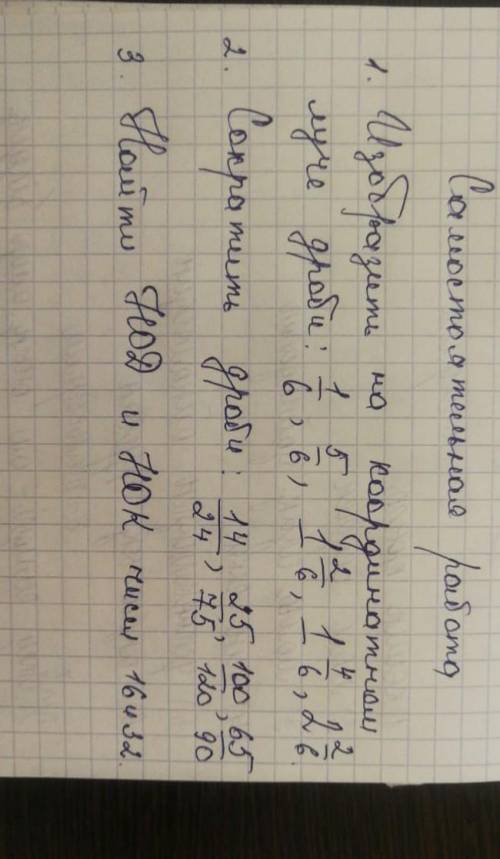 Самостоятельная работа
1. Изобразить на координатном
луче дроби: 1/6, 5/6, 1 2/6, 1 4/6, 2 2/6.
2. Сократить дроби: 14/24, 25/75, 100/120, 65/90
3. Найти НОД и НОК чисел 16 и 32.